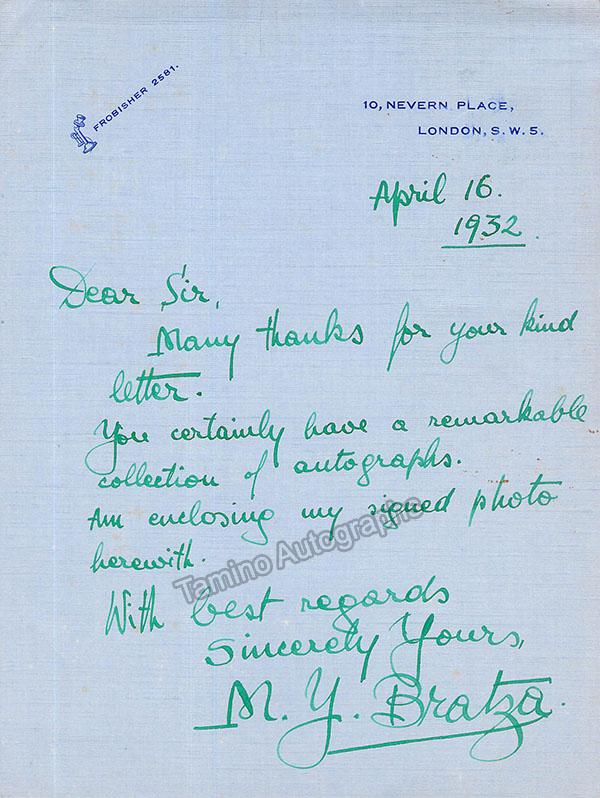 FROBISHER 2581.
10, NEVERN PLACE,
LONDON, S.W.5.
April 16.
1932.
Dear Sir,
Many thanks for your kind
letter.
You certainly have a remarkable
collection of autographs.
Am enclosing my signed photo
herewith.
Tamino Autographs
With best regards
Sincerely Yours,
M. Y. Bratza.